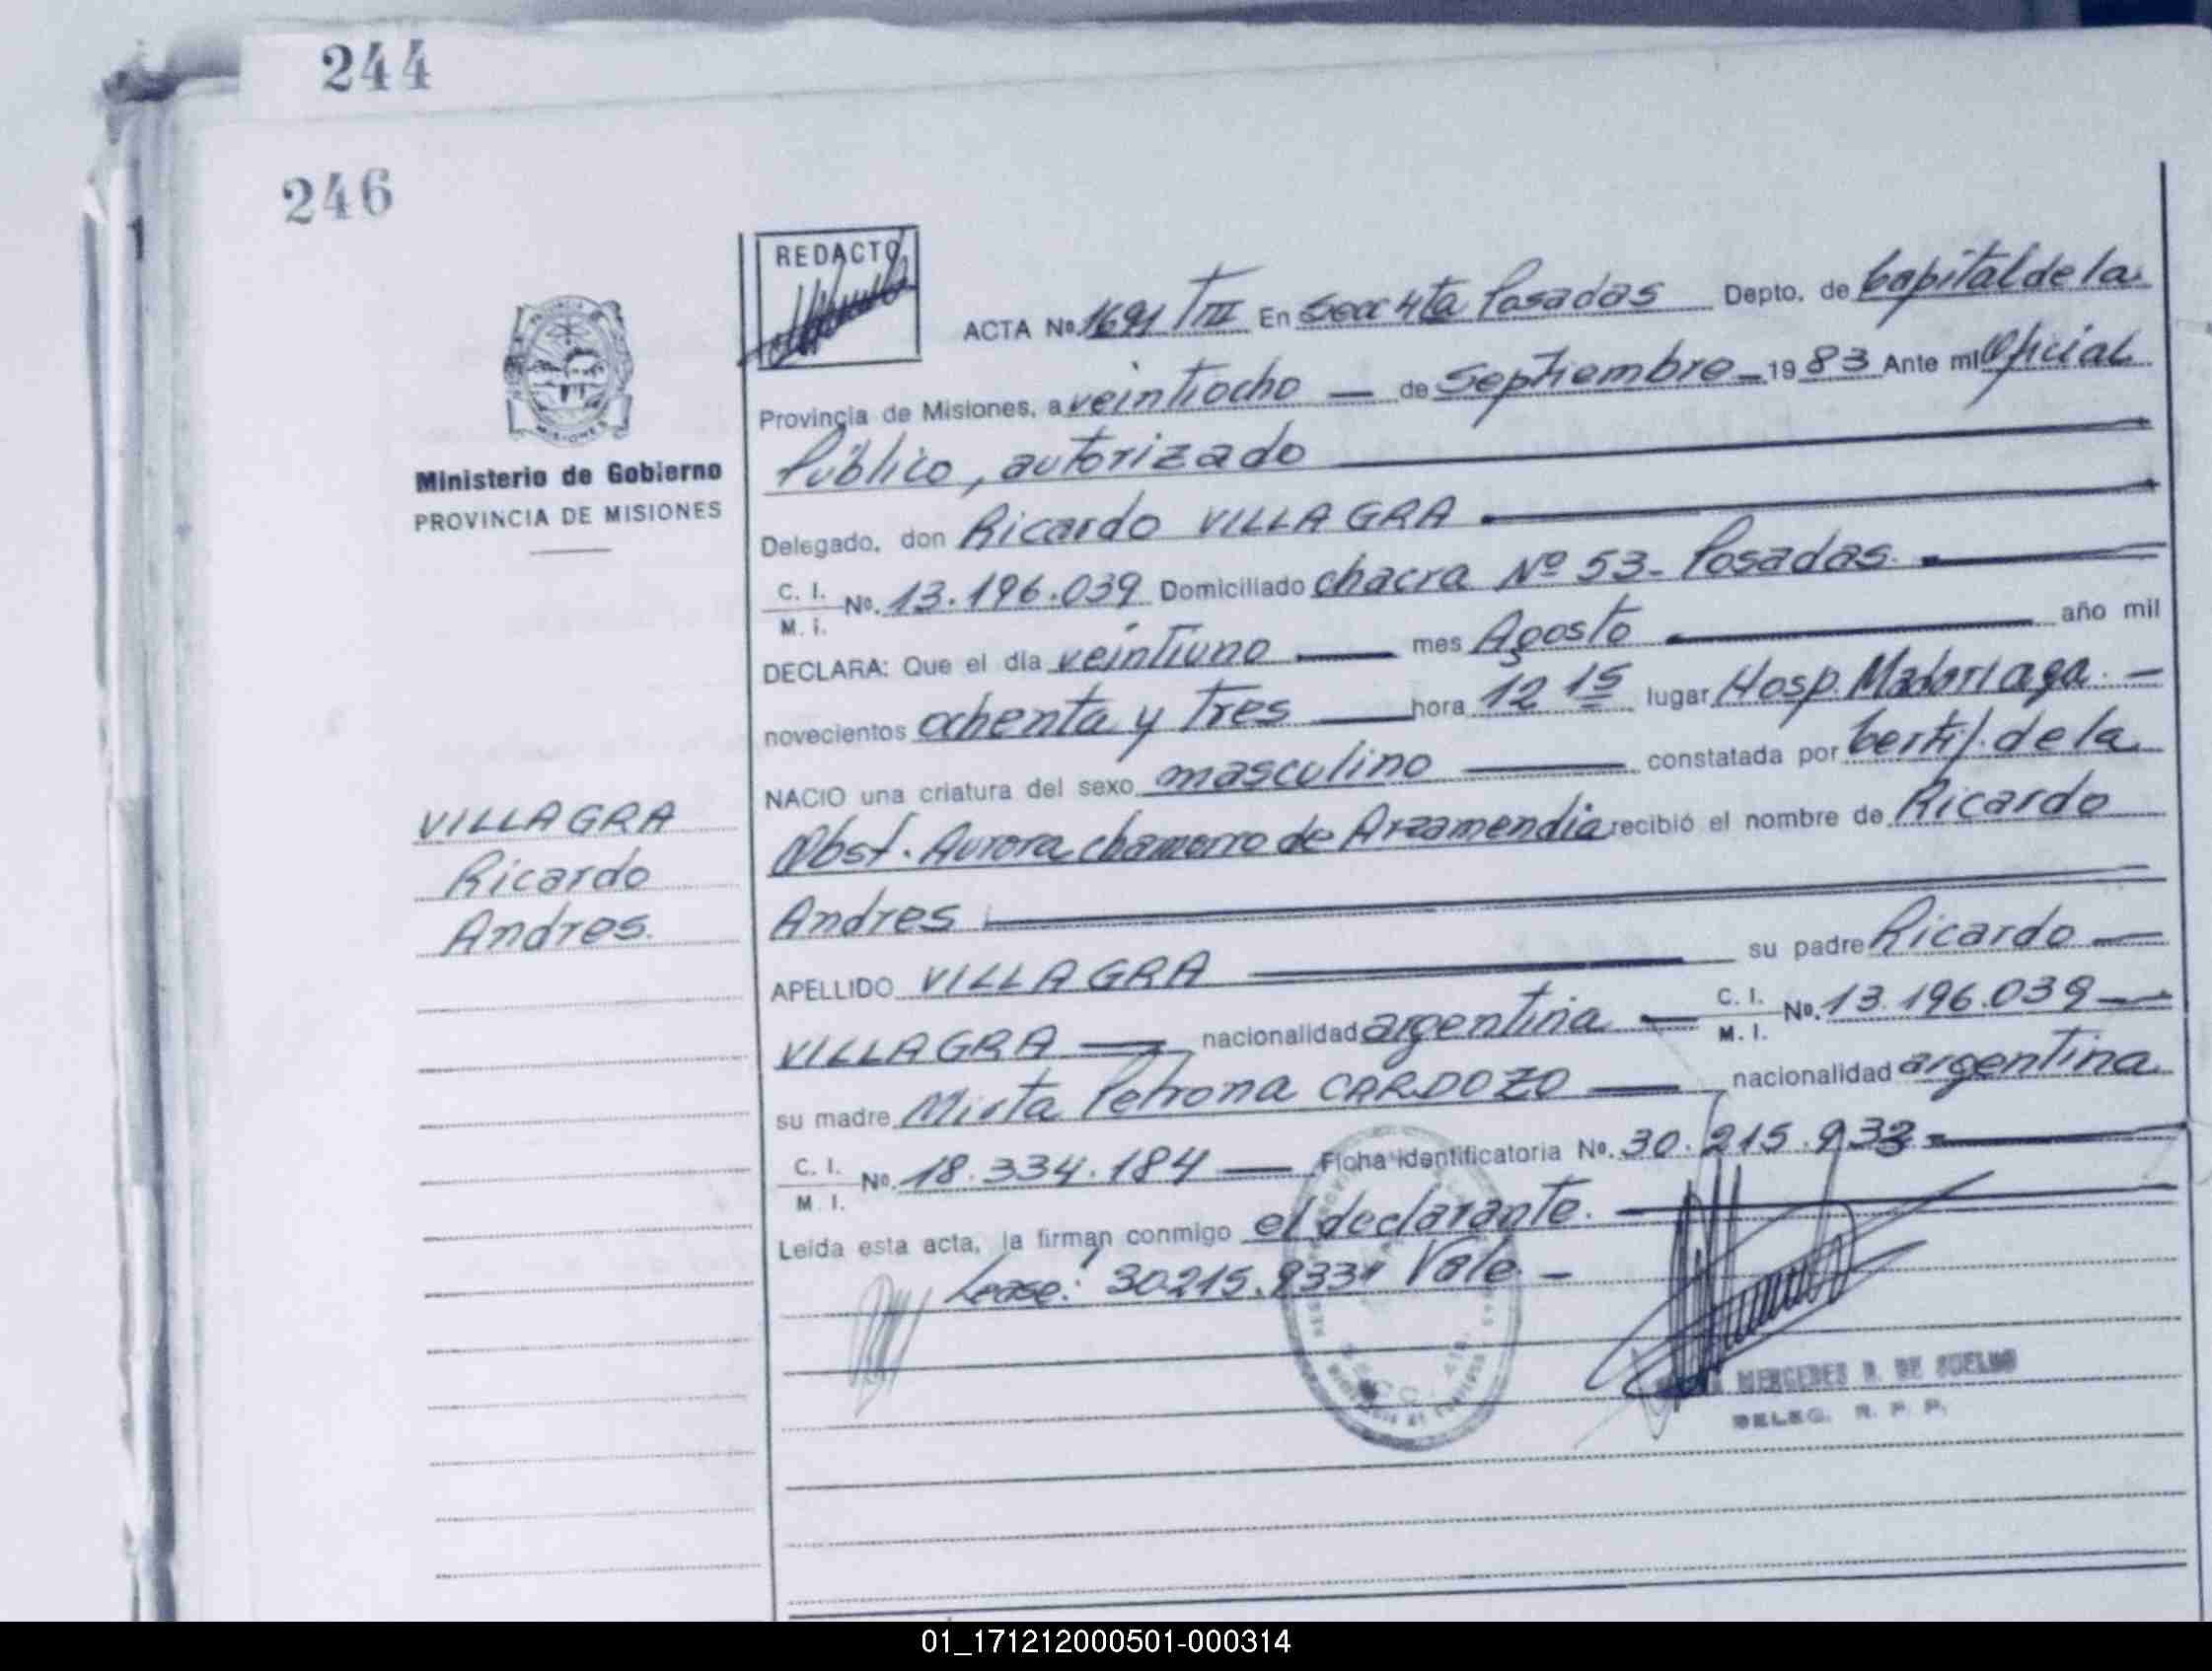 244
246
REDACTO
Ministerio de Gobierno
PROVINCIA DE MISIONES
VILLAGRA
Ricardo
Andres.
ACTA No. 1691 TIII En Secc 4ta Posadas Depto. de Capital de la
Provincia de Misiones, a veintiocho — de Septiembre — 1983 Ante mi Oficial
Público, autorizado
Delegado, don Ricardo VILLAGRA
C. I.
M. I. No. 13.196.039 Domiciliado chacra Nº 53 - Posadas.
DECLARA: Que el día veintiuno — mes Agosto — año mil
novecientos ochenta y tres — hora 12 15 lugar Hosp. Madariaga. —
NACIO una criatura del sexo masculino — constatada por Certif. de la
Obst. Aurora chamorro de Arzamendia recibió el nombre de Ricardo
Andres
APELLIDO VILLAGRA — su padre Ricardo —
VILLAGRA — nacionalidad argentina — C. I.
M. I. No. 13.196.039 —
su madre Mirta Petrona CARDOZO — nacionalidad argentina
C. I.
M. I. No. 18.334.184 — Ficha identificatoria No. 30.215.933 -
Leída esta acta, la firman conmigo el declarante. —
Lease: 30.215.933" Vale. —
MERCEDES R. DE SUELDO
DELEG. R. P. P.
01_171212000501-000314